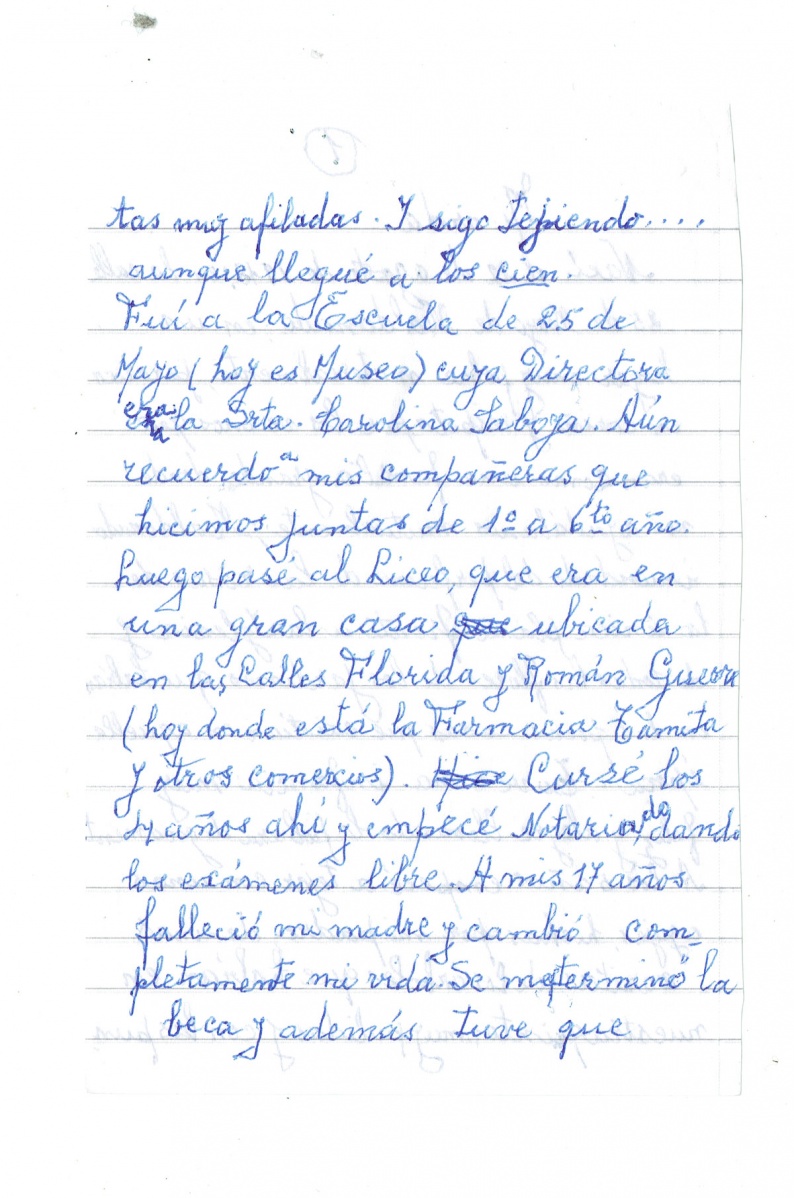 tas muy afiladas. Y sigo tejiendo....
aunque llegué a los cien.
Fuí a la Escuela de 25 de
Mayo (hoy es Museo) cuya Directora
era la Srta. Carolina Saboya. Aún
recuerdo a mis compañeras que
hicimos juntas de 1º a 6to año.
Luego pasé al Liceo, que era en
una gran casa ubicada
en las Calles Florida y Román Guerra
(hoy donde está la Farmacia Camita
y otros comercios). Cursé los
4 años ahí y empecé Notariado, dando
los exámenes libre. A mis 17 años
falleció mi madre y cambió com-
pletamente mi vida. Se me terminó la
beca y además tuve que